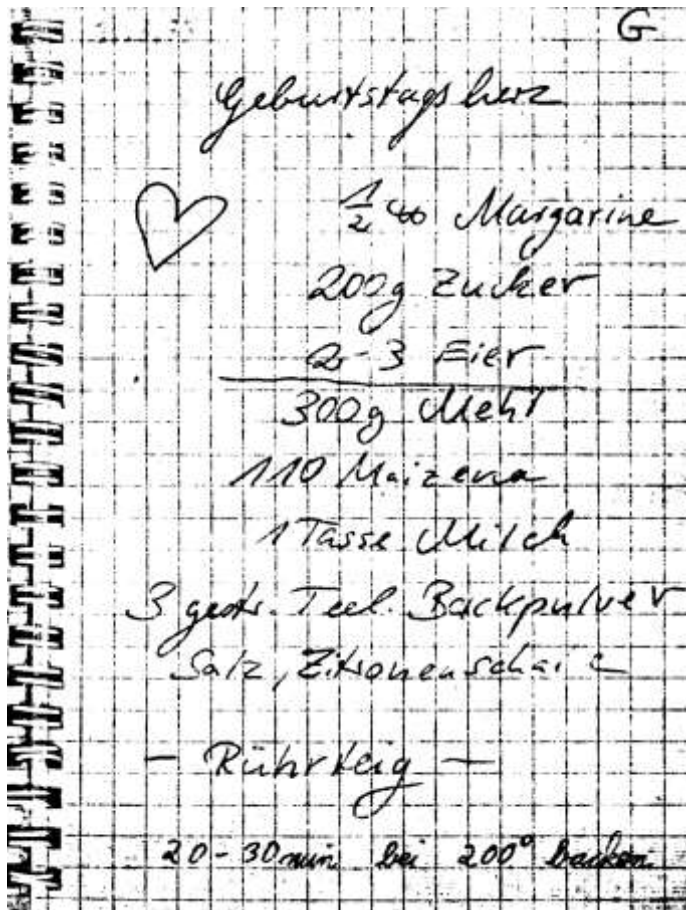 G
Geburtstagsherz
1/2 ℔ Margarine
200g Zucker
2-3 Eier
300g Mehl
110 Maizena
1 Tasse Milch
3 gestr. Teel. Backpulver
Salz, Zitronenschale
- Rührteig -
20-30 min bei 200° backen